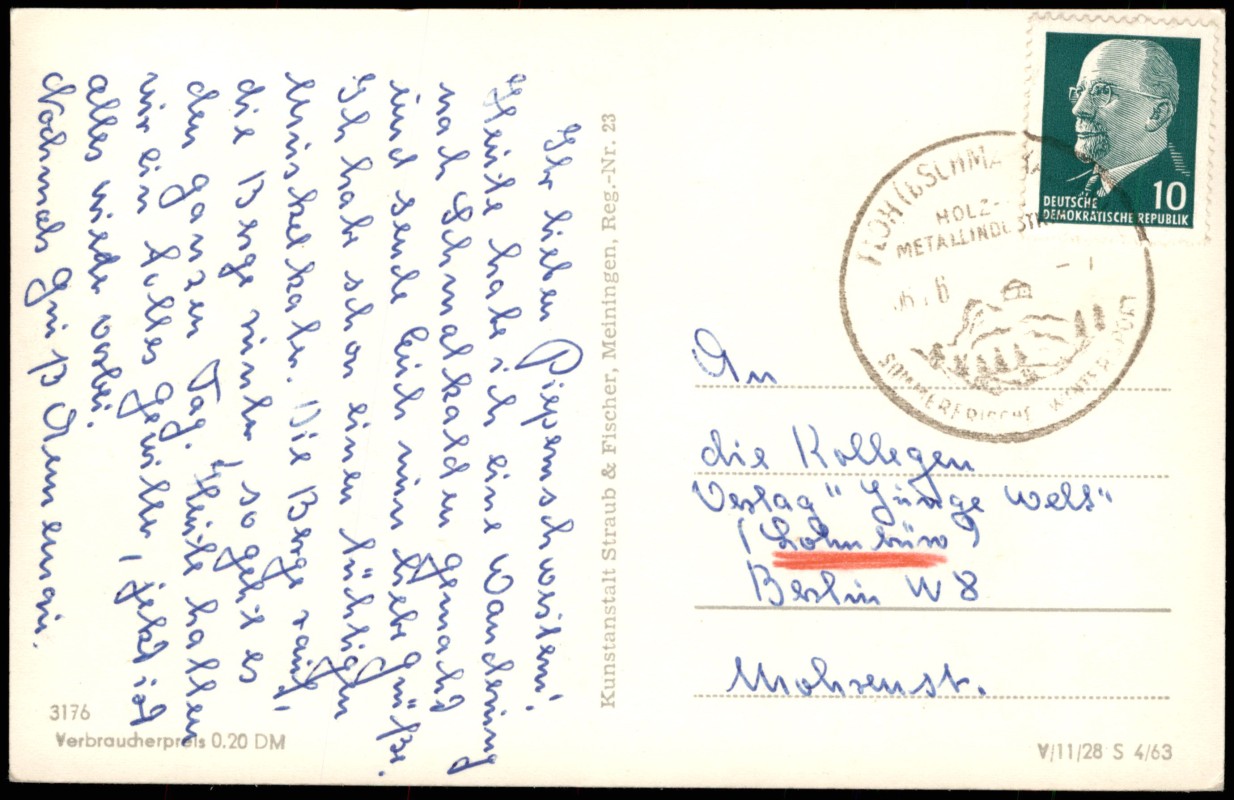 Ihr lieben Piepenschwestern!
Heute habe ich eine Wanderung
nach Schmalkalden gemacht
und sende Euch nun liebe Grüße.
Ich habe schon einen tüchtigen
Muskelkater. Die Berge rauf,
die Berge runter, so geht es
den ganzen Tag. Heute hatten
wir ein tolles Gewitter, jetzt ist
alles wieder vorbei.
Nochmals Gruß
Kunstanstalt Straub & Fischer, Meiningen, Reg.-Nr. 23
3176
Verbraucherpreis 0.20 DM
10
DEUTSCHE
DEMOKRATISCHE REPUBLIK
HOLZ-
METALLINDUSTR
SOMMERFRISCHE WINTERSPORT
An
die Kollegen
Verlag "Junge Welt"
(Lohnbüro)
Berlin W 8
Mohrenst.
V/11/28 S 4/63